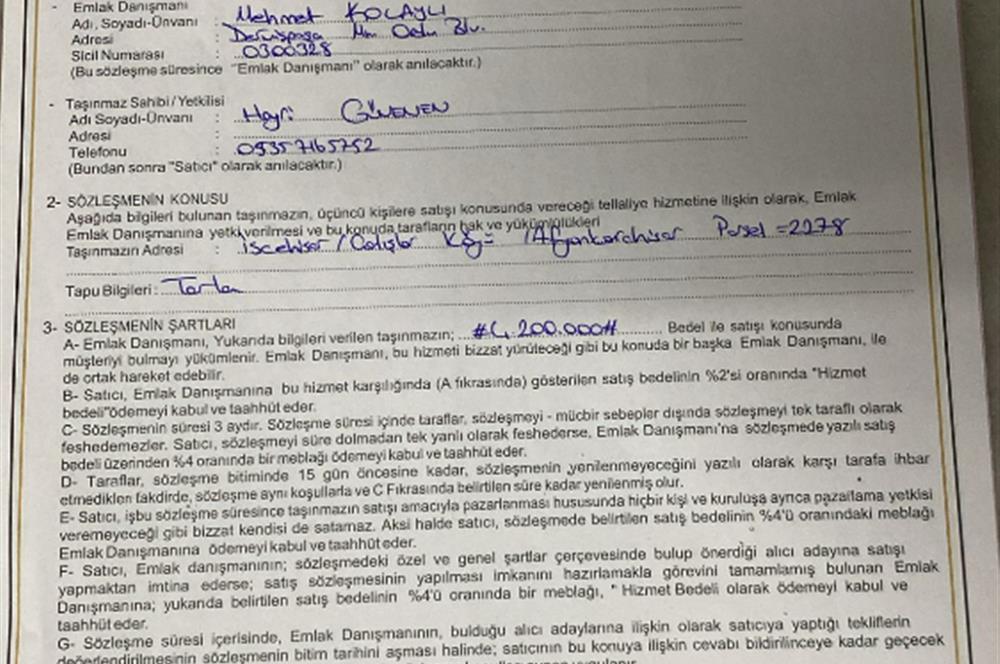 - Emlak Danışmanı
Adı, Soyadı-Ünvanı : Mehmet KOLAYLI
Adresi : Dervişpaşa Blv.
Sicil Numarası : 0300328
(Bu sözleşme süresince "Emlak Danışmanı" olarak anılacaktır.)
- Taşınmaz Sahibi/Yetkilisi
Adı Soyadı-Ünvanı : Hayri GÜVENEN
Adresi :
Telefonu : 05357165752
(Bundan sonra "Satıcı" olarak anılacaktır.)
2- SÖZLEŞMENİN KONUSU
Aşağıda bilgileri bulunan taşınmazın, üçüncü kişilere satışı konusunda vereceği tellaliye hizmetine ilişkin olarak, Emlak
Emlak Danışmanına yetki verilmesi ve bu konuda tarafların hak ve yükümlülükleri
Taşınmazın Adresi : İscehisar / Çalışlar Köyü / Afyonkarahisar Parsel = 2278
Tapu Bilgileri : Tarla
3- SÖZLEŞMENİN ŞARTLARI
A- Emlak Danışmanı, Yukarıda bilgileri verilen taşınmazın; 200.000# Bedel ile satışı konusunda
müşteriyi bulmayı yükümlenir. Emlak Danışmanı, bu hizmeti bizzat yürüteceği gibi bu konuda bir başka Emlak Danışmanı, ile
de ortak hareket edebilir.
B- Satıcı, Emlak Danışmanına bu hizmet karşılığında (A fıkrasında) gösterilen satış bedelinin %2'si oranında "Hizmet
bedeli"ödemeyi kabul ve taahhüt eder.
C- Sözleşmenin süresi 3 aydır. Sözleşme süresi içinde taraflar, sözleşmeyi - mücbir sebepler dışında sözleşmeyi tek taraflı olarak
feshedemezler. Satıcı, sözleşmeyi süre dolmadan tek yanlı olarak feshederse, Emlak Danışmanı'na sözleşmede yazılı satış
bedeli üzerinden %4 oranında bir meblağı ödemeyi kabul ve taahhüt eder.
D- Taraflar, sözleşme bitiminde 15 gün öncesine kadar, sözleşmenin yenilenmeyeceğini yazılı olarak karşı tarafa ihbar
etmedikleri takdirde, sözleşme aynı koşullarla ve C Fıkrasında belirtilen süre kadar yenilenmiş olur.
E- Satıcı, işbu sözleşme süresince taşınmazın satışı amacıyla pazarlanması hususunda hiçbir kişi ve kuruluşa ayrıca pazarlama yetkisi
veremeyeceği gibi bizzat kendisi de satamaz. Aksi halde satıcı, sözleşmede belirtilen satış bedelinin %4'ü oranındaki meblağı
Emlak Danışmanına ödemeyi kabul ve taahhüt eder.
F- Satıcı, Emlak danışmanının; sözleşmedeki özel ve genel şartlar çerçevesinde bulup önerdiği alıcı adayına satışı
yapmaktan imtina ederse; satış sözleşmesinin yapılması imkanını hazırlamakla görevini tamamlamış bulunan Emlak
Danışmanına; yukarıda belirtilen satış bedelinin %4'ü oranında bir meblağı, " Hizmet Bedeli olarak ödemeyi kabul ve
taahhüt eder.
G- Sözleşme süresi içerisinde, Emlak Danışmanının, bulduğu alıcı adaylarına ilişkin olarak satıcıya yaptığı tekliflerin
değerlendirilmesinin sözleşmenin bitim tarihini aşması halinde; satıcının bu konuya ilişkin cevabı bildirilinceye kadar geçecek